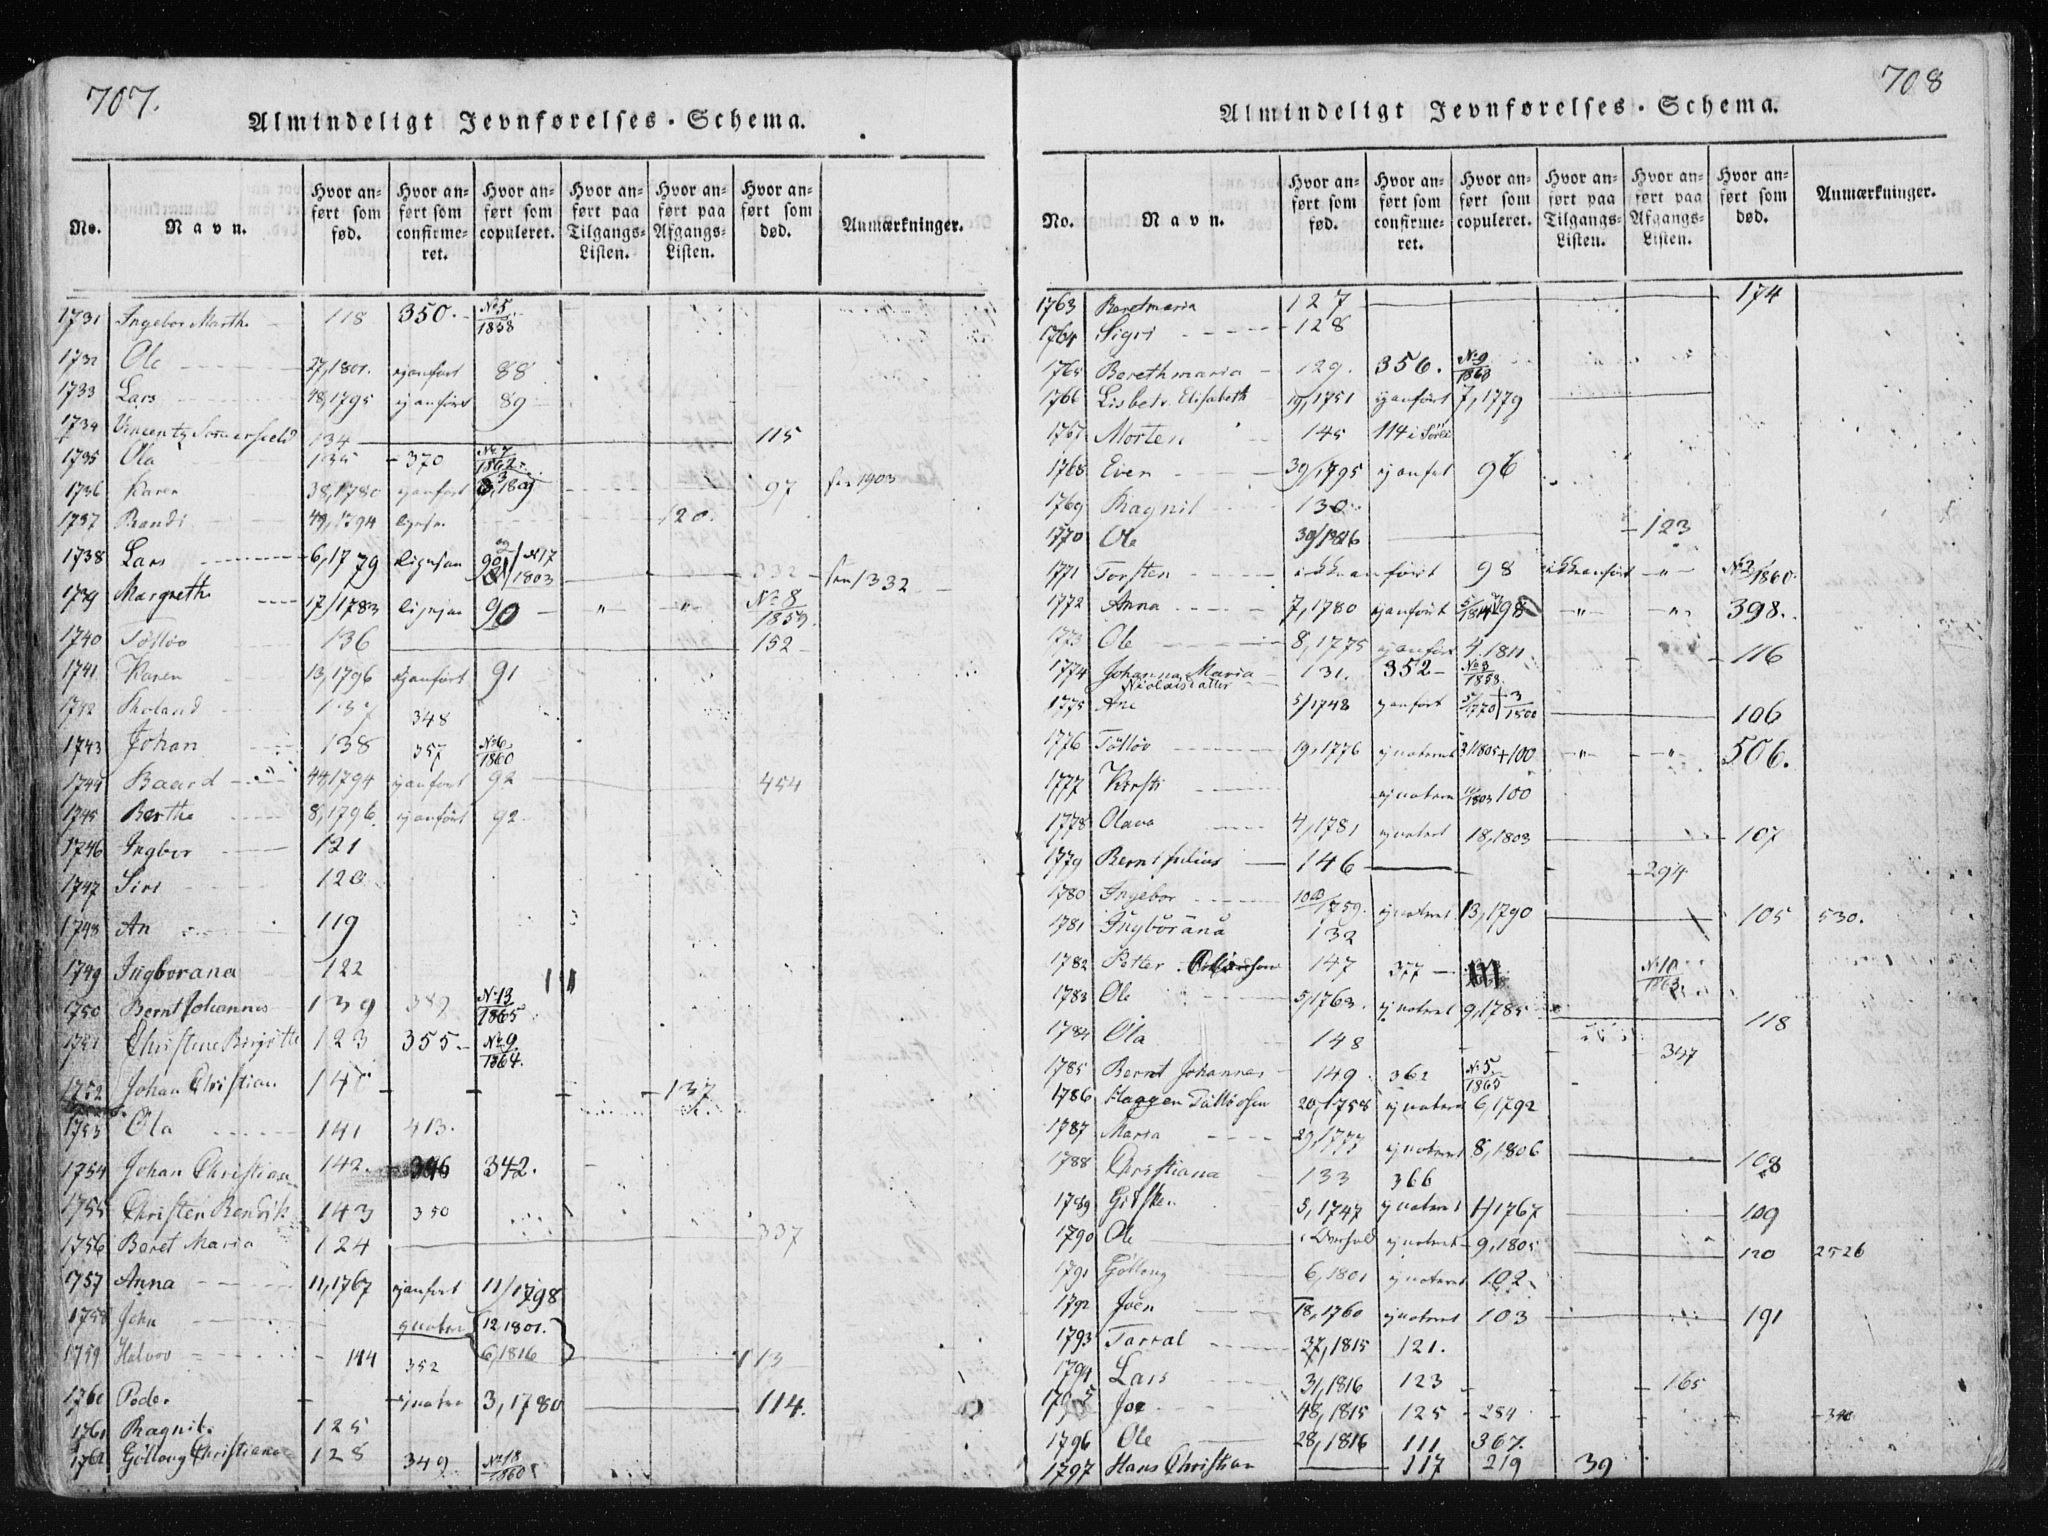 707.
Almindeligt Jevnførelses-Schema.
No. Navn. Hvor anført som fød. Hvor anført som confirmeret. Hvor anført som copuleret. Hvor anført paa Tilgangs-Listen. Hvor anført paa Afgangs-Listen. Hvor anført som død. Anmærkninger.
1731 Ingebor Marth 118 350. No 5 1858
1732 Ole 27,1801. ejanført 88
1733 Lars 48,1795 ejanført 89
1734 134 115
1735 Ola 135 370 No 7 1862
1736 Karen 38,1780 ejanført 97 1903
1737 Randi 49,1794 120.
1738 Lars 6,1779 ligesaa No 17 1803 332 1332
1739 Margreth 17/1783 90 " " No 8 1859.
1740 Tølløv 136 152
1741 Karen 13,1796 ejanført 91
1742 137 348
1743 Johan 138 357 No 6 1860
1744 Baard 44,1794 ejanført 92 454
1745 Berthe 8,1796 ejanført 92
1746 Ingbor 121
1747 Siri 120
1748 An 119
1749 Ingborana 122
1750 Bernt Johannes 139 389 No 13 1865
1751 Christine Birgitte 123 355 No 9. 1864.
1752 Johan Christian 140 137
1753 Ola 141 413.
1754 Johan Christian 142. 346 342.
1755 Christen 143 350
1756 Beret Maria 124 337
1757 Anna 11,1767 ejanført 11/1798
1758 John 12,1801.
1759 Halvor 144 352 6,1816 113
1760 Peder 3,1780 114.
1761 Ragnil 125
1762 Gølloug Christiana 128 349 No 18 1860
708
Almindeligt Jevnførelses-Schema.
No. Navn. Hvor anført som fød. Hvor anført som confirmeret. Hvor anført som copuleret. Hvor anført paa Tilgangs-Listen. Hvor anført paa Afgangs-Listen. Hvor anført som død. Anmærkninger.
1763 Beretmaria 127 174
1764 Sigri 128
1765 Berethmaria 129. 356. No 9 1860
1766 Lisbet Elisabeth 19,1751 ejanført 7,1779
1767 Morten 145 114
1768 Even 39/1795 96
1769 Ragnil 130
1770 Ole 39/1816 123
1771 Torsten 98 ikkeanført " No 2/1860
1772 Anna 7,1780 ejanført 98 " " 398.
1773 Ole 8,1775 ejanført 4,1811 116
1774 Johanna Maria Nicolaisdatter 131. 352 No 3 1858
1775 Ane 5/1748 ejanført 5/1770 3/1800 106
1776 Tølløv 19,1776 ejnoteret 100 " " 506.
1777 Kirsti ejnotere 100
1778 Olava 4,1781 ejnotert 18,1803 107
1779 Bernt Julius 146 294
1780 Ingebor ejnoteret 13,1790 105 530.
1781 Ingborana 132
1782 Petter 147 377 No 10 1863
1783 Ole 5/1763. ejnoteret 9,1785 118
1784 Ola 148 347
1785 Bernt Johannes 149 362 No 5. 1865
1786 Haagen Tølløvsen 20,1758 ejnoteret 6,1792
1787 Maria 29,1777 ejnoteret 8,1806
1788 Christiana 133 366 108
1789 5,1747 ejnoteret 1/1767 109
1790 Ole ejnoteret 9,1805 120 2526
1791 Gølloug 6,1801 ejnoteret 102
1792 Joen 18,1760 ejnoteret 103 191
1793 Tarral 37,1815 121.
1794 Lars 31,1816 123 165
1795 Joe 48,1815 125 284 340
1796 Ole 28,1816 111 367.
1797 Hans Christian 117 219 39